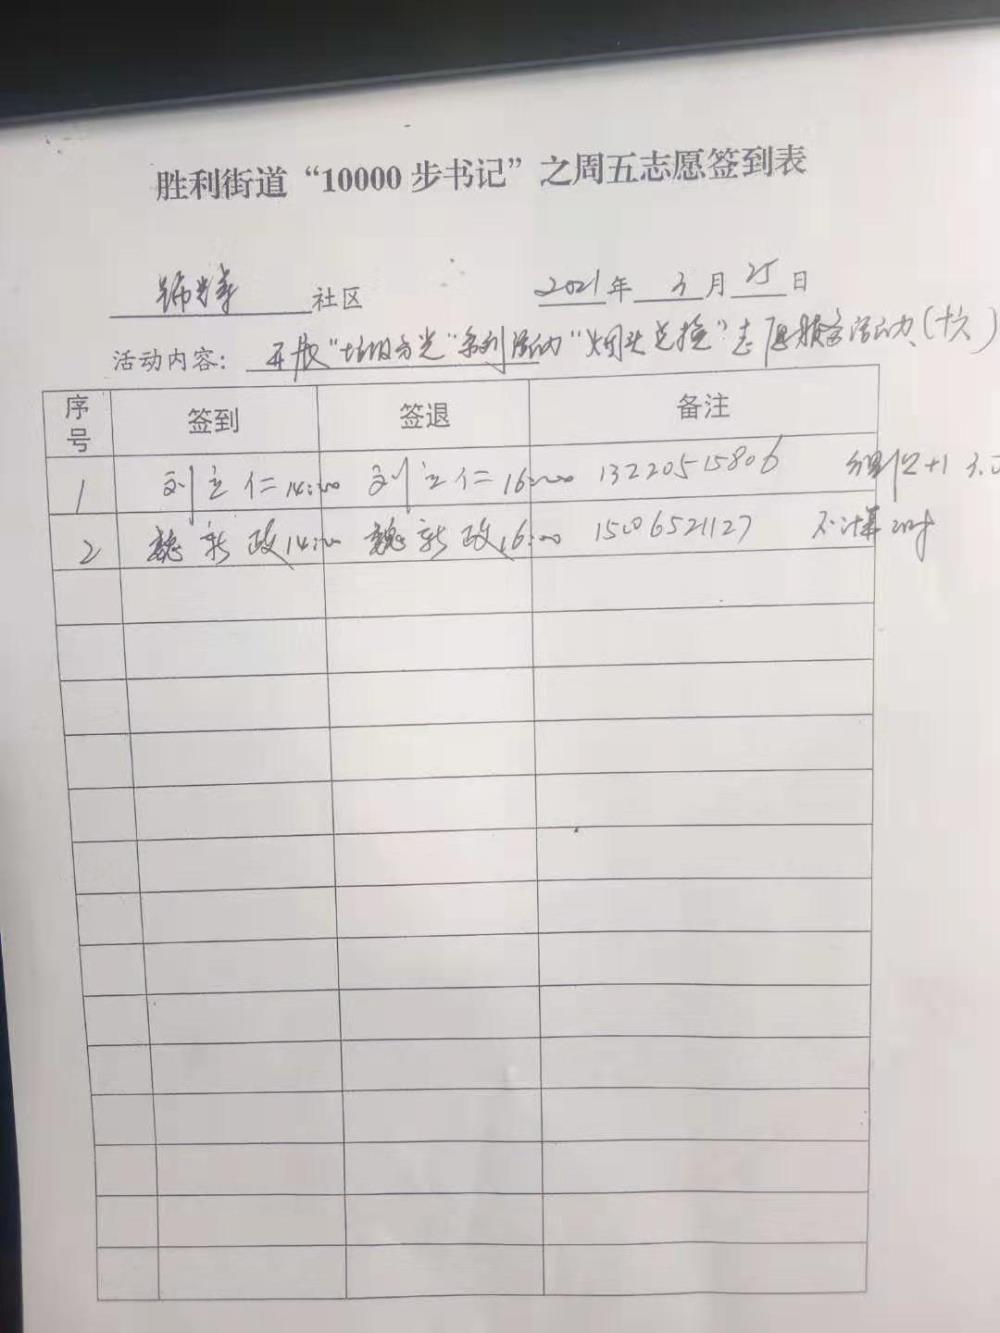 胜利街道“10000步书记”之周五志愿签到表
社区 2021年 3月 25日
活动内容: 开展“垃圾分类”系列活动“烟头兑换”志愿服务活动(十六)
序号 签到 签退 备注
1 刘立仁 14:00 刘立仁 16:00 13220515806
2 魏新政 14:00 魏新政 16:00 15006521127 不计算